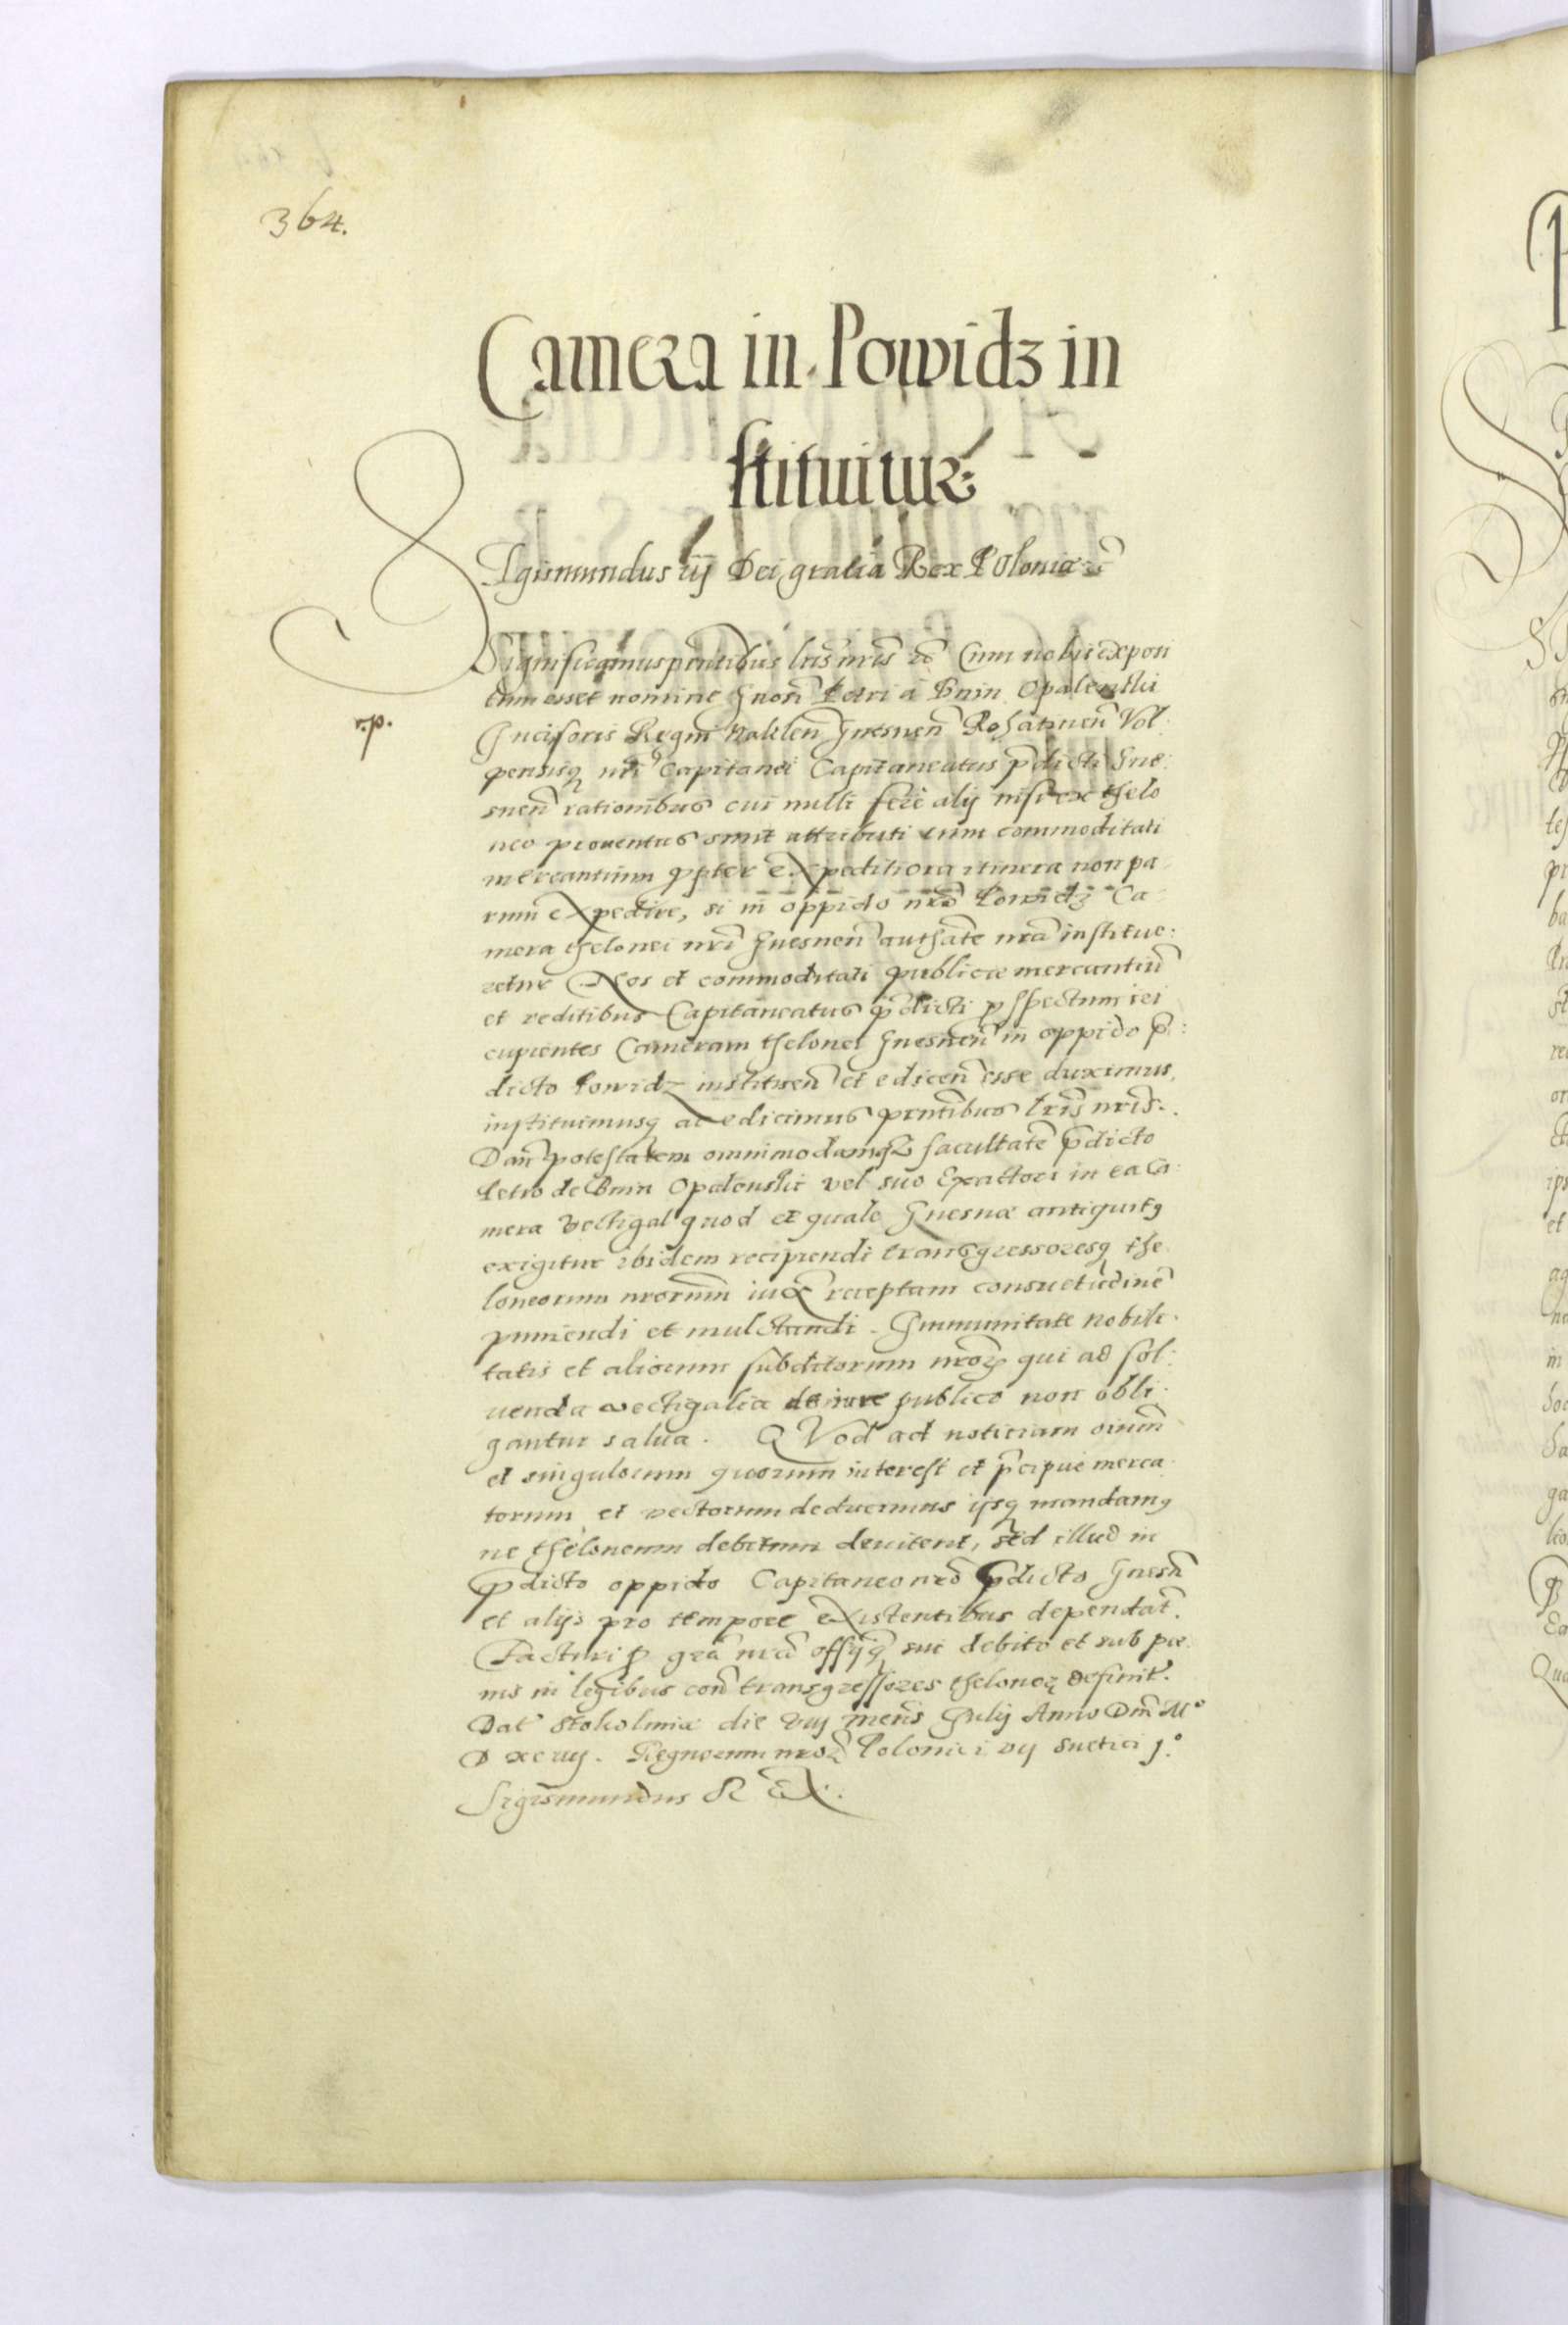 364.
Camera in Powidz in
stituitur
SIgismundus iij Dei gratia Rex Poloniæ ec̃
Significamus pr̃ntibus lr̃is nr̃is ec̃ Cum nobis exposi
tum esset nomine Gnosi Petri à Bnin Opalenskii
r.p.
Incisoris Regni Naklen̄ Gnesnen̄ Rohatinen̄ Vol:
pensisq̨ nr̃i Capitanei Capitaneatus p̃dicti Gne:
snen̄ rationibus cui nulli ferè alij nisi ex thelo
neo prouentus sunt attributi cum commoditati
mercantium p̱pter expeditiora itinera non pa
rum expedire, si in oppido nr̃o Powidz Ca:
mera thelonei nr̃i Gnesnen̄ authãte nr̃a institue:
retur Nos et commoditati publicæ mercantiũ
et reditibus Capitaneatus p̃dicti p̱spectum iri
cupientes Cameram thelonei Gnesnen̄ in oppido p̃:
dicto Powidz instituen̄ et edicen̄ esse duximus,
instituimusq̨ ac edicimus pr̃ntibus lr̃is nr̃is.
Dan̄ potestatem omnimodamq̨ facultatẽ p̃dicto
Petro de Bnin Opalenskii vel suo Exactori in ea Ca:
mera vectigal quod et quale Gnesnæ antiquitꝯ
exigitur ibidem recipiendi transgressoresq̨ the
loneorum nrorum iux̃ receptam consuetudinẽ
puniendi et mulctandi. Immunitate nobili:
tatis et aliorum subditorum nroꝝ qui ad sol:
uenda vectigalia de iure publico non obli:
gantur salua. QVod ad notitiam oĩnm
et singulorum quorum interest et p̃cipuè merca
torum et vectorum deducimus ijsq̨ mandamꝯ
ne theloneum debitum deuitent, sed illud in
p̃dicto oppido Capitaneo nr̃o p̃dicto Gnesn̄
et alijs pro tempore existentibus dependãt.
Facturi p̱ gr̃a nr̃a offijq̨ sui debito et sub pœ
nis in legibus con̄ transgressores theloneꝝ definit̃.
Dat̃ Stokolmiæ die viij men̄is Julij Anno Dn̄i Mº
D xciiij. Regnorum nroꝝ Polonici vij Suetici j.º
Sigismundus REX.